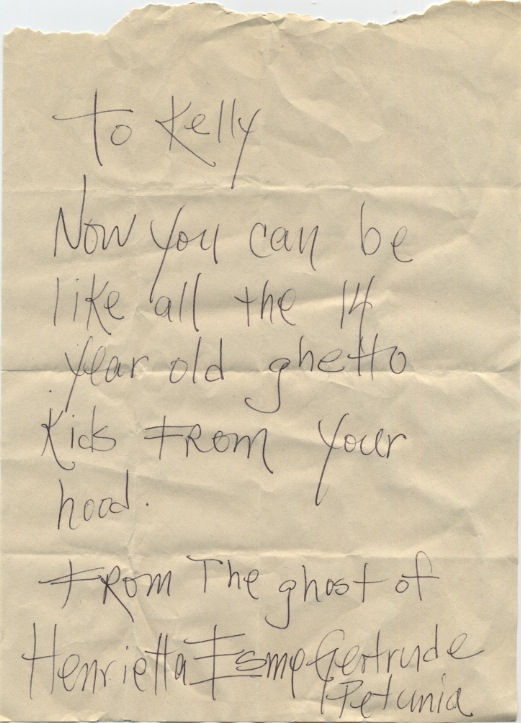 To Kelly
Now you can be
like all the 14
year old ghetto
Kids From your
hood.
From The ghost of
Henrietta Esme Gertrude
Petunia